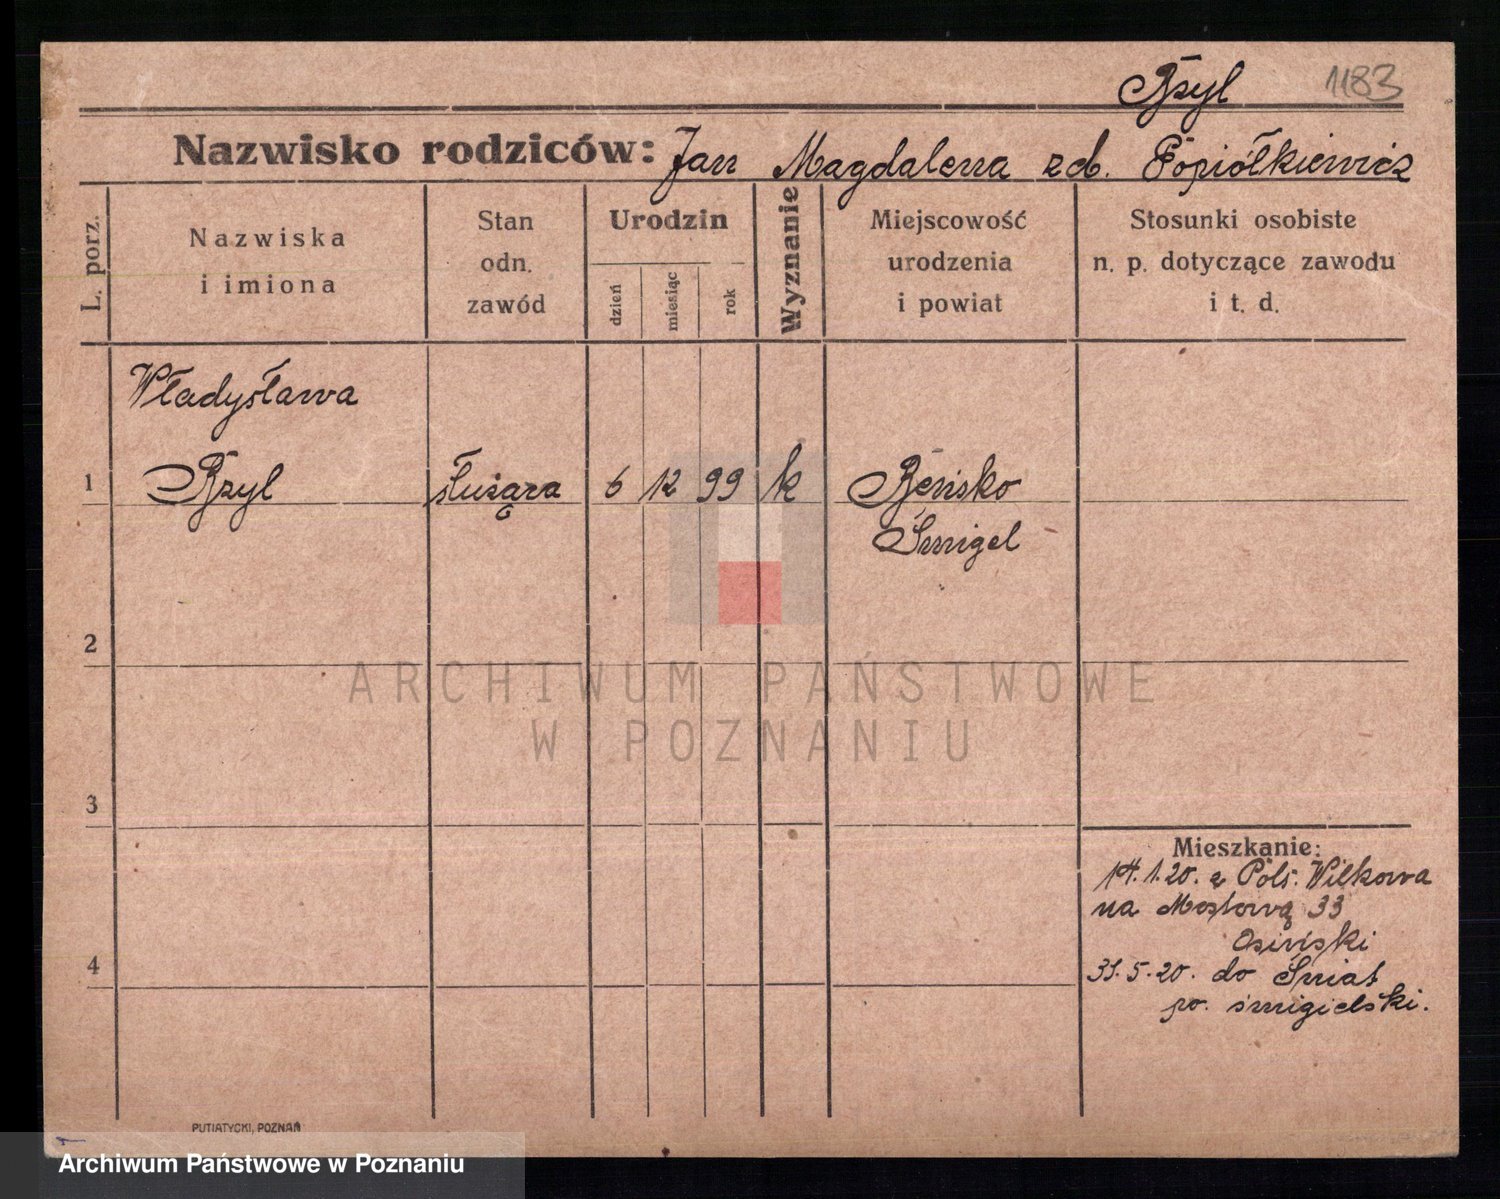 Bzyl 1183
Nazwisko rodziców: Jan Magdalena zd. Popiółkiewicz
L. porz.
Nazwiska
i imiona
Stan
odn.
zawód
Urodzin
dzień
miesiąc
rok
Wyznanie
Miejscowość
urodzenia
i powiat
Stosunki osobiste
n. p. dotyczące zawodu
i t. d.
Władysława
1 Bzyl służąca 6 12 99 k Bońsko
Śmigel
2
ARCHIWUM PAŃSTWOWE
W POZNANIU
3
Mieszkanie:
14.1.20. z Pols. Wilkowa
na Mostową 33
Osiński
4
31.5.20. do Śniat
po. śmigielski.
PUTIATYCKI, POZNAŃ
Archiwum Państwowe w Poznaniu